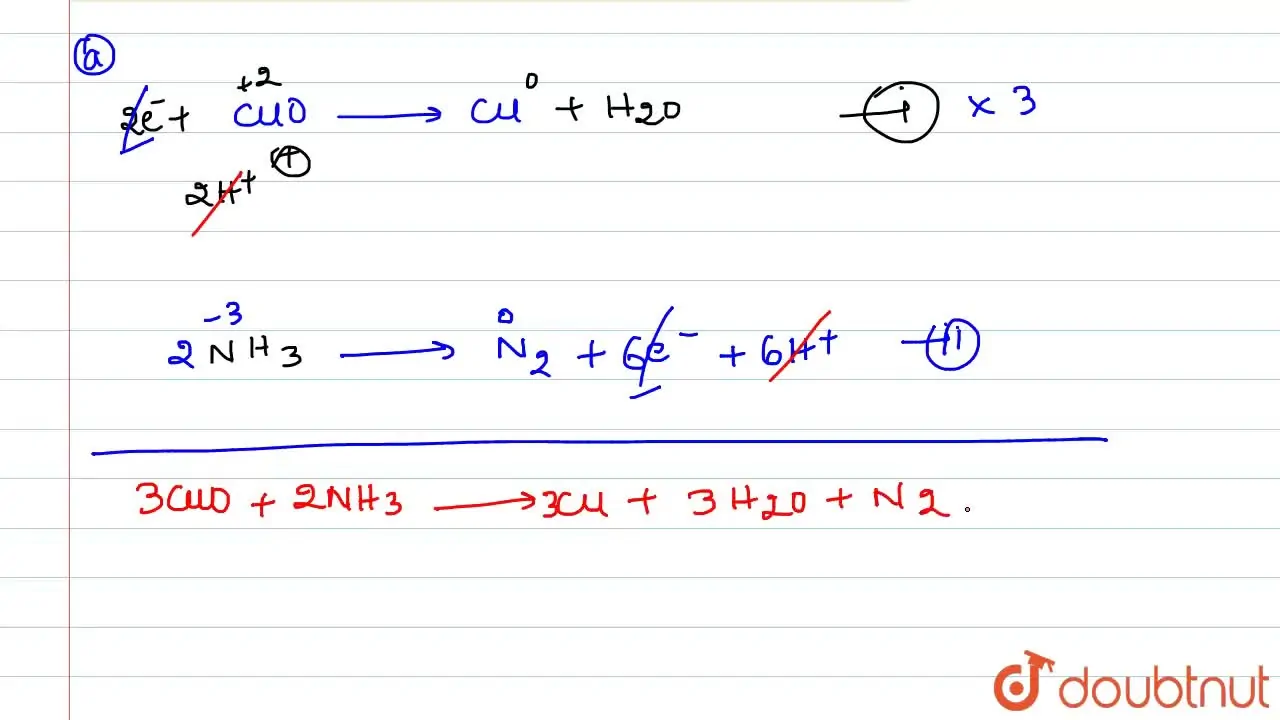 a
+2 0
2e⁻ + CuO ⟶ Cu + H2O — i × 3
2H⁺ +
-3 0
2NH3 ⟶ N2 + 6e⁻ + 6H⁺ — ii
3CuO + 2NH3 ⟶ 3Cu + 3H2O + N2
doubtnut